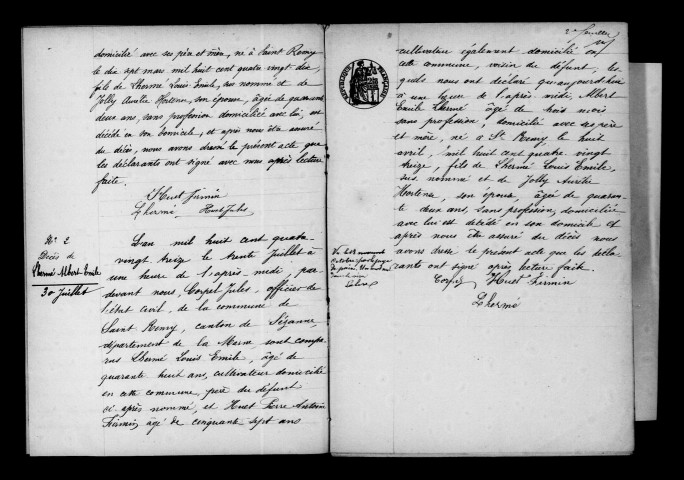 domicilié avec ses père et mère, né à Saint Remy
le dix sept mars mil huit cent quatre vingt dix,
fils de Lhermé Louis Emile, sus nommé et de
Jolly Aurélie Hortense, son épouse, âgée de quarante
deux ans, sans profession domiciliée avec lui, est
décédé en son domicile, et après nous être assuré
du décès, nous avons dressé le présent acte que
les déclarants ont signé avec nous après lecture
faite.
Huet Firmin
Lhermé Huet Jules
N° 2
Décès de
Lhermé Albert-Emile
30 Juillet
L'an mil huit cent quatre-
vingt treize le trente Juillet à
une heure de l'après midi, par
devant nous, Corpel Jules, officier de
l'état civil, de la commune de
Saint Remy, canton de Sézanne,
département de la Marne sont compa-
rus Lhermé Louis Emile, âgé de
quarante huit ans, cultivateur domicilié
en cette commune, père du défunt
ci après nommé, et Huet Pierre Antoine
Firmin, âgé de cinquante sept ans
2e feuillet
REPUBLIQUE FRANÇAISE
cultivateur également domicilié en
cette commune, voisin du défunt, les
quels nous ont déclaré qu'aujourd'hui
à une heure de l'après midi, Albert
Emile Lhermé âgé de trois mois
sans profession, domicilié avec ses père
et mère, né à St Remy le huit
avril, mil huit cent quatre vingt
treize, fils de Lhermé Louis Emile,
sus nommé et de Jolly Aurélie
Hortense, son épouse, âgée de quaran-
te deux ans, sans profession, domiciliée
avec lui est décédé en son domicile et
après nous être assuré du décès nous
avons dressé le présent acte que les décla-
rants ont signé après lecture faite.
Corpel Huet Firmin
Lhermé